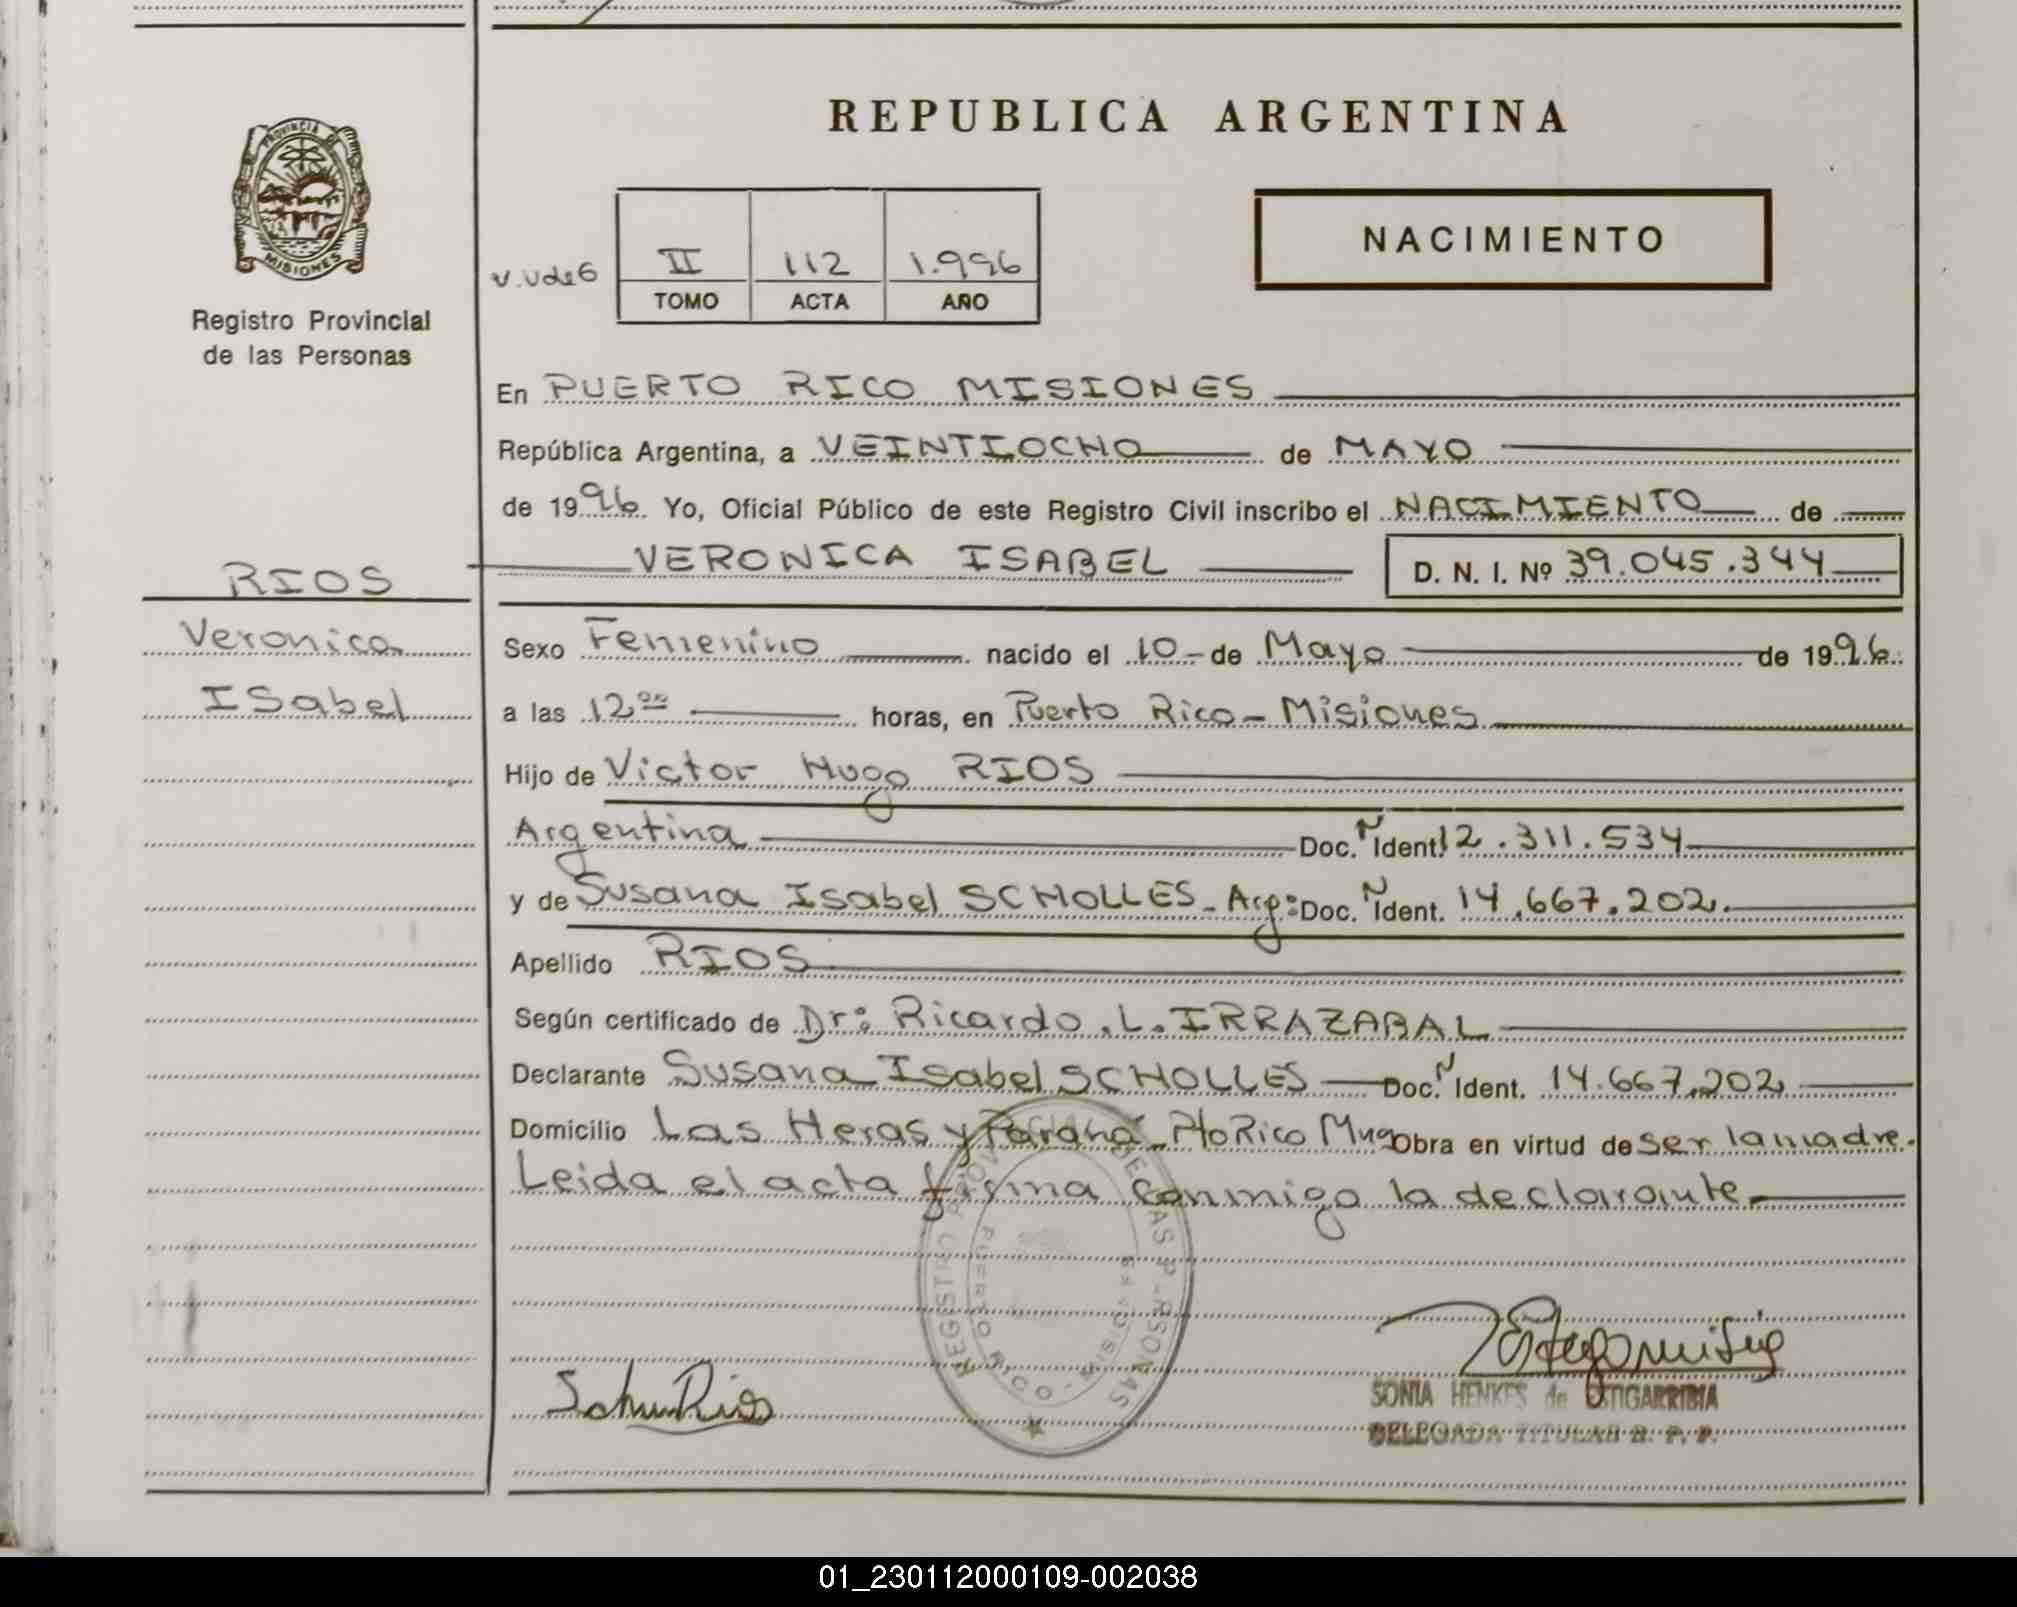 REPUBLICA ARGENTINA
PROVINCIA DE
MISIONES
Registro Provincial
de las Personas
NACIMIENTO
II 112 1.996
TOMO ACTA AÑO
En PUERTO RICO MISIONES
República Argentina, a VEINTIOCHO de MAYO
de 1996. Yo, Oficial Público de este Registro Civil inscribo el NACIMIENTO de
RIOS
VERONICA ISABEL D. N. I. Nº 39.045.344
Veronica
Sexo Femenino nacido el 10 - de Mayo de 1996.
ISabel
a las 12 00 horas, en Puerto Rico - Misiones
Hijo de Victor Hugo RIOS
Argentina Doc. N Ident. 12.311.534
y de Susana Isabel SCHOLLES - Arg: Doc. N Ident. 14.667.202.
Apellido RIOS
Según certificado de Dr: Ricardo .L. IRRAZABAL
Declarante Susana Isabel SCHOLLES Doc. N Ident. 14.667.202
Domicilio Las Heras y Paraná - Pto Rico Mnes Obra en virtud de ser la madre.
Leida el acta firma conmigo la declarante
REGISTRO PROVINCIAL DE LAS PERSONAS
PUERTO RICO - MISIONES
SONIA HENKES de ESTIGARRIBIA
DELEGADA TITULAR R. P. P.
01_230112000109-002038